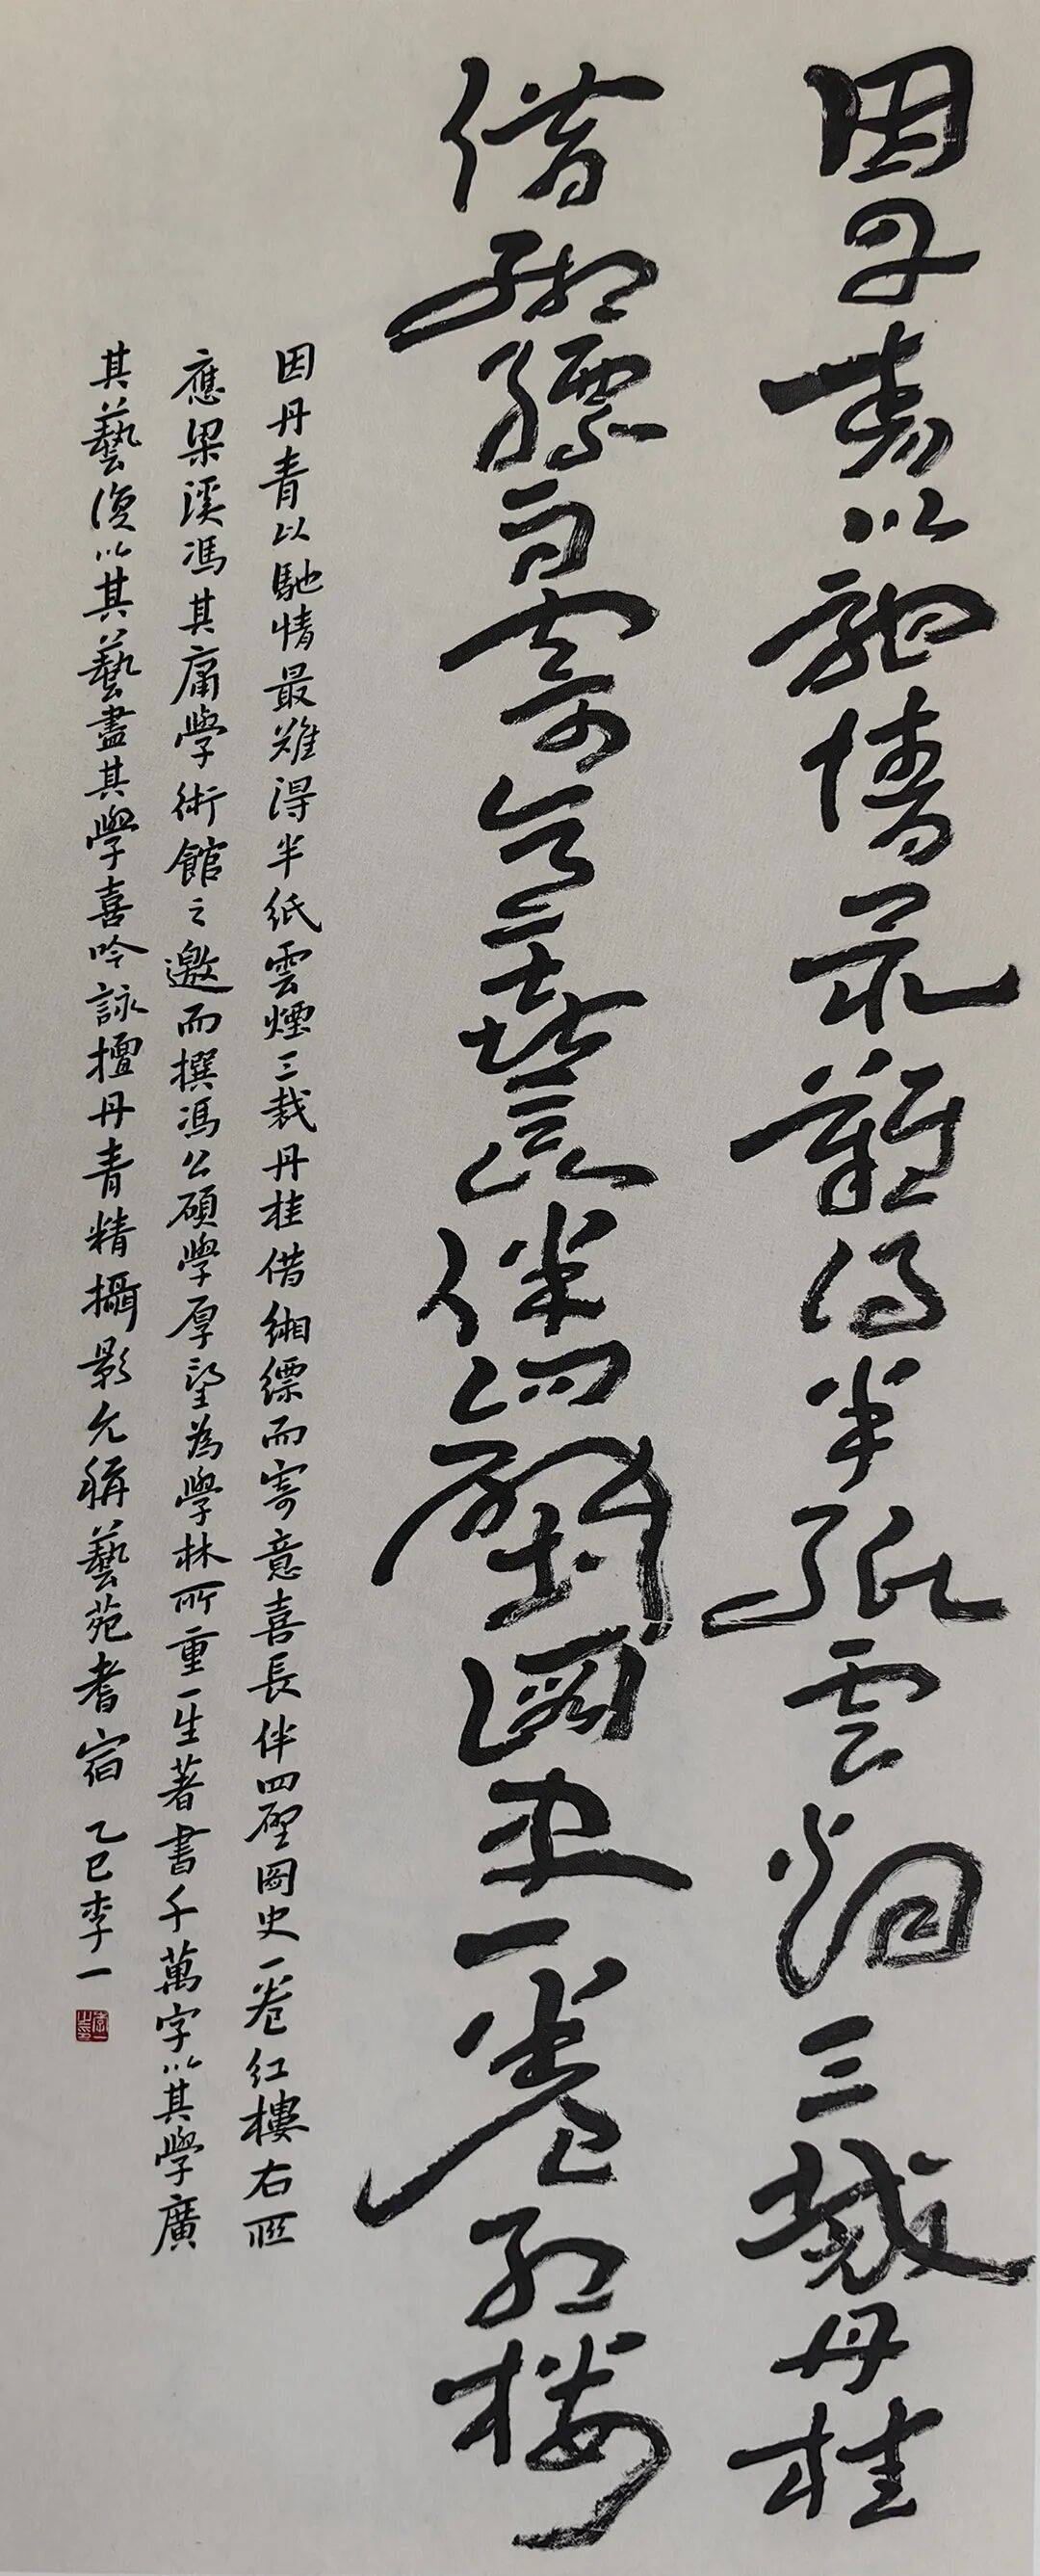 因丹青以馳情最難得半紙雲烟三裁丹桂
借緗縹而寄意喜長伴四壁圖史一卷紅樓
因丹青以馳情最難得半紙雲煙三裁丹桂借緗縹而寄意喜長伴四壁圖史一卷紅樓右聯
應梁溪馮其庸學術館之邀而撰馮公碩學厚望為學林所重一生著書千萬字以其學廣
其藝復以其藝盡其學喜吟詠擅丹青精攝影允稱藝苑耆宿 乙巳李一